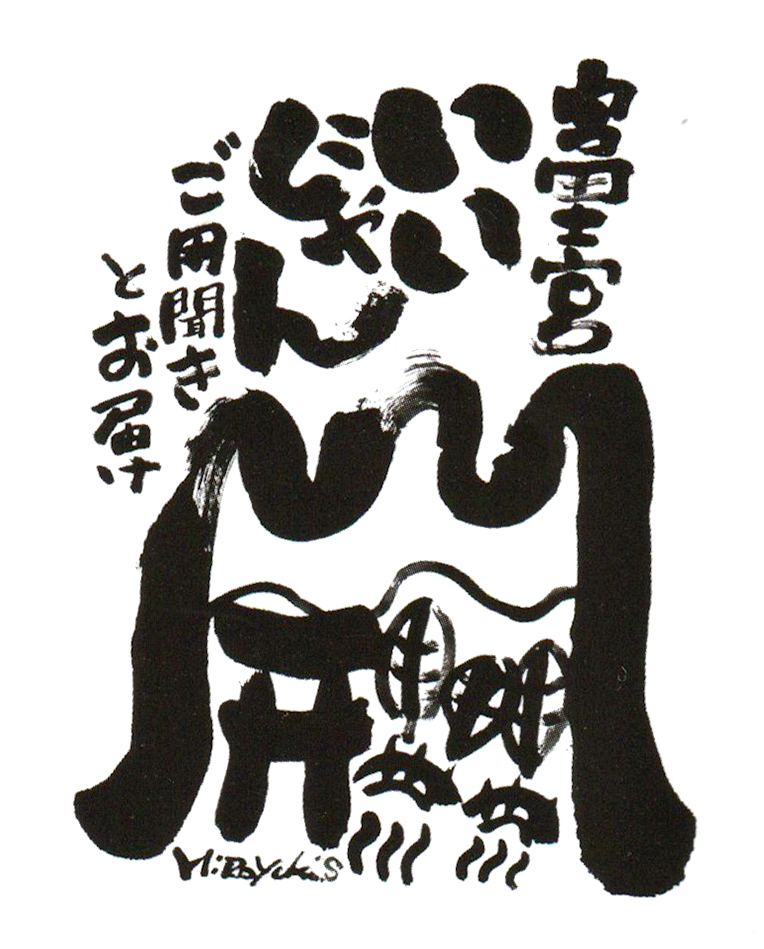 富士宮
いい
じゃん
ご用聞き
とお届け
Hiroyuki.S